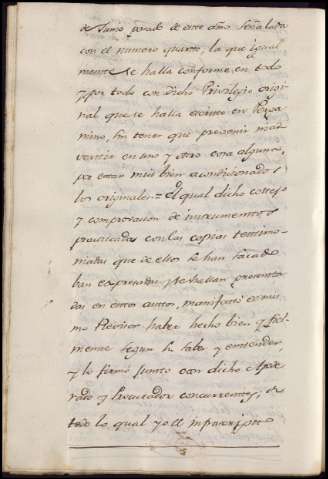 de Junio pasado de este año señalada
con el numero quarto, la que igual
mente se halla conforme en todo
y por todo con dicho Privilegio origi
nal que se halla escrito en Perga
mino, sin tener que prevenir ni ad
vertir en uno y otro cosa alguna,
por estar mui bien acondicionados
los originales = el qual dicho cotejo
y comprovacion de instrumentos
practicados con las copias testimo
niadas que de ellos se han sacado
han expresadas y se hallan presenta
das en estos autos, manifestó el mis
mo Revisor haber hecho bien y fiel
mente segun su saber y entender
y lo firmó junto con dicho Apode
rado y Procurador concurrentes, de
todo lo qual yo el infrascripto